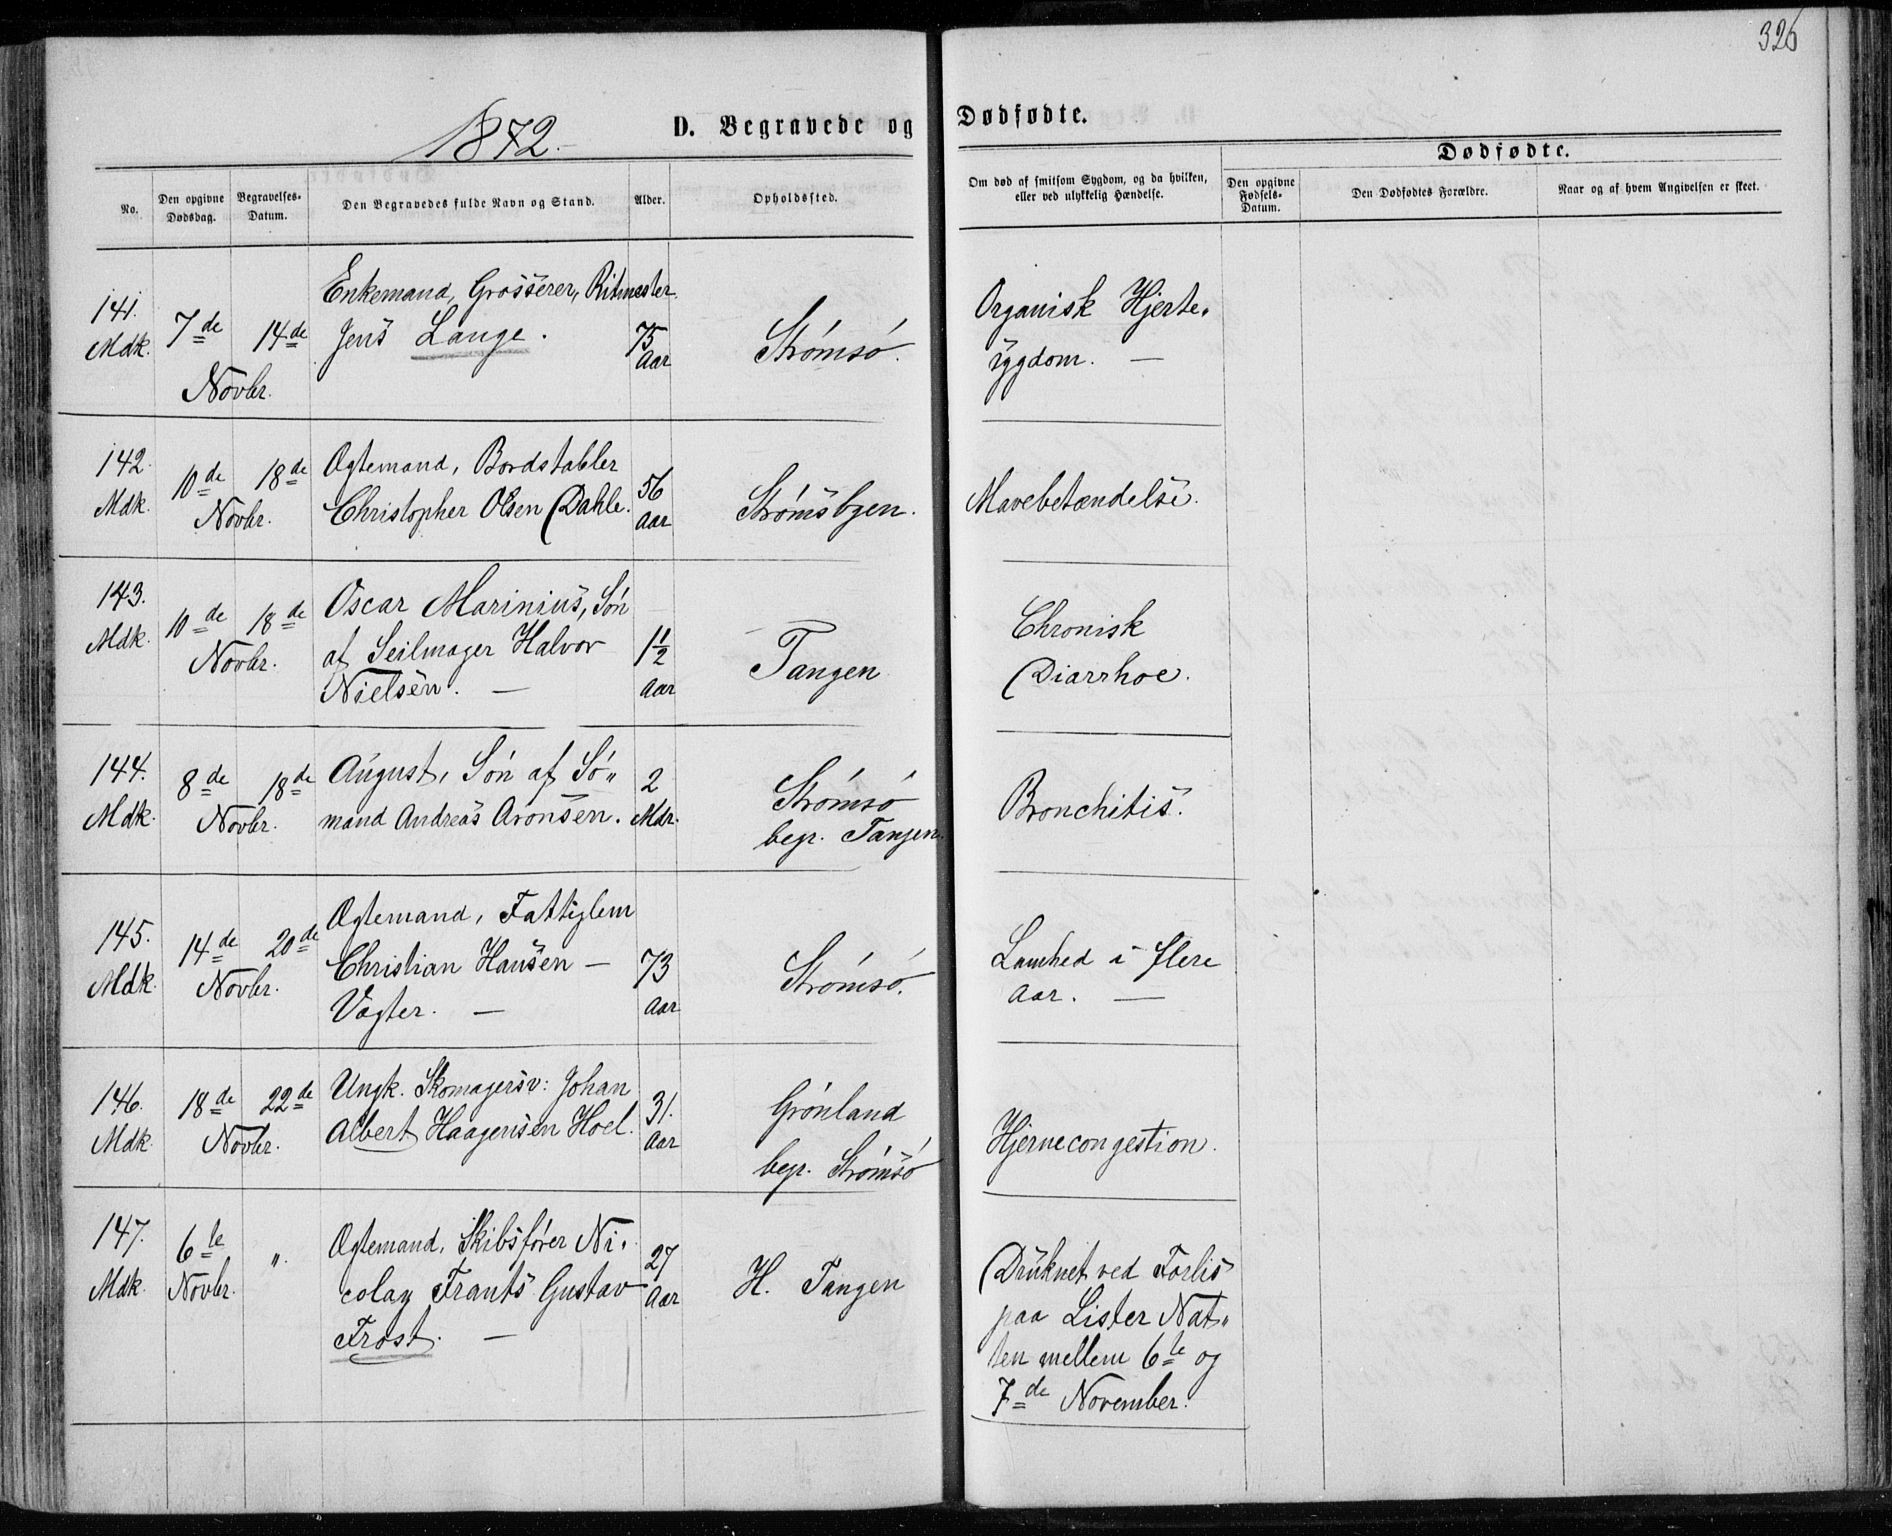 326
1872.
D. Begravede og Dødfødte.
Dødfødte.
No.
Den opgivne Dødsdag.
Begravelses-Datum.
Den Begravedes fulde Navn og Stand.
Alder.
Opholdssted.
Om død af smitsom Sygdom, og da hvilken,
eller ved ulykkelig Hændelse.
Den opgivne Fødsels-Datum.
Den Dødfødtes Forældre.
Naar og af hvem Angivelsen er skeet.
141.
Mdk.
7de 14de
Novbr.
Enkemand, Grosserer, Ritmester
Jens Lange.
75
Aar
Strømsø.
Organisk Hjerte-
sygdom. —
142.
Mdk.
10de 18de
Novbr.
Ægtemand, Bordstabler
Christopher Olsen Dahle.
56
Aar
Strømsbyen.
Mavebetændelse.
143.
Mdk.
10de 18de
Novbr.
Oscar Marinius, Søn
af Seilmager Halvor
Nielsen. —
1½
Aar
Tangen
Chronisk
Diarrhoe.
144.
Mdk.
8de 18de
Novbr.
August, Søn af Sø„
mand Andreas Aronsen.
2
Mdr.
Strømsø
begr. Tangen.
Bronchitis.
145.
Mdk.
14de 20de
Novbr.
Ægtemand, Fattiglem
Christian Hansen —
Vagter. —
73
Aar
Strømsø.
Lamhed i flere
Aar. —
146.
Mdk
18de 22de
Novbr.
Ungk. Skomagersv: Johan
Albert Haagensen Hoel.
31.
Aar
Grønland
begr. Strømsø
Hjernecongestion.
147.
Mdk.
6te
Novbr.
„.
Ægtemand, Skibsfører Ni-
colay Frants Gustav
Frost. —
27
Aar
H. Tangen
Druknet ved Forlis
paa Lister Nat„
ten mellem 6te og
7de November.